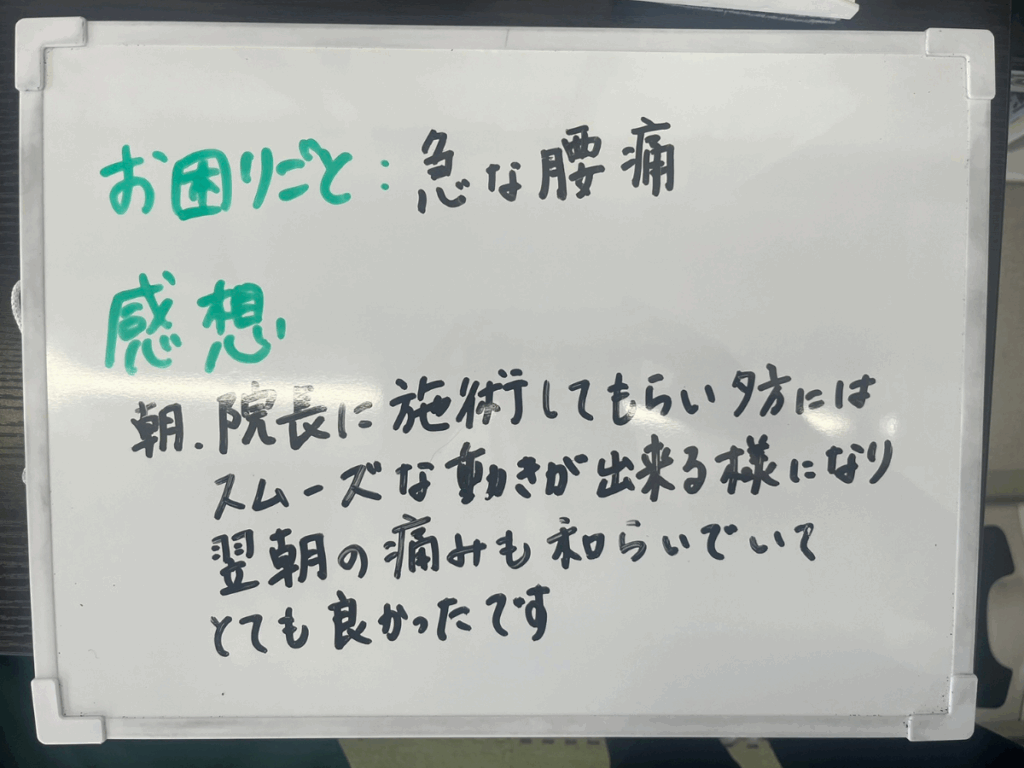 お困りごと：急な腰痛
感想
朝、院長に施術してもらい夕方には
スムーズな動きが出来る様になり
翌朝の痛みも和らいでいて
とても良かったです